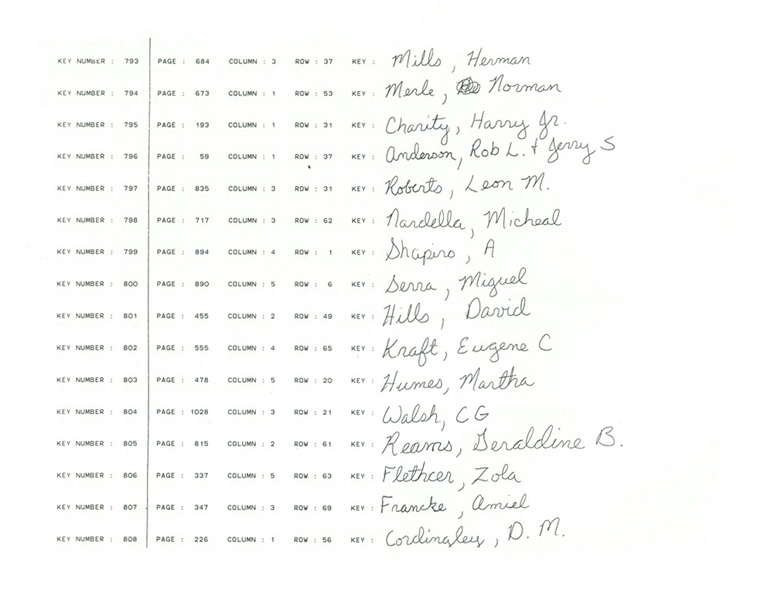 KEY NUMBER : 793 PAGE : 684 COLUMN : 3 ROW : 37 KEY : Mills, Herman
KEY NUMBER : 794 PAGE : 673 COLUMN : 1 ROW : 53 KEY : Merle, Norman
KEY NUMBER : 795 PAGE : 193 COLUMN : 1 ROW : 31 KEY : Charity, Harry Jr.
KEY NUMBER : 796 PAGE : 59 COLUMN : 1 ROW : 37 KEY : Anderson, Rob L. + Jerry S
KEY NUMBER : 797 PAGE : 835 COLUMN : 3 ROW : 31 KEY : Roberts, Leon M.
KEY NUMBER : 798 PAGE : 717 COLUMN : 3 ROW : 62 KEY : Nardella, Micheal
KEY NUMBER : 799 PAGE : 894 COLUMN : 4 ROW : 1 KEY : Shapiro, A
KEY NUMBER : 800 PAGE : 890 COLUMN : 5 ROW : 6 KEY : Serra, Miguel
KEY NUMBER : 801 PAGE : 455 COLUMN : 2 ROW : 49 KEY : Hills, David
KEY NUMBER : 802 PAGE : 555 COLUMN : 4 ROW : 65 KEY : Kraft, Eugene C
KEY NUMBER : 803 PAGE : 478 COLUMN : 5 ROW : 20 KEY : Humes, Martha
KEY NUMBER : 804 PAGE : 1028 COLUMN : 3 ROW : 21 KEY : Walsh, C G
KEY NUMBER : 805 PAGE : 815 COLUMN : 2 ROW : 61 KEY : Reams, Geraldine B.
KEY NUMBER : 806 PAGE : 337 COLUMN : 5 ROW : 63 KEY : Flethcer, Zola
KEY NUMBER : 807 PAGE : 347 COLUMN : 3 ROW : 69 KEY : Francke, Amiel
KEY NUMBER : 808 PAGE : 226 COLUMN : 1 ROW : 56 KEY : Cordingley, D. M.